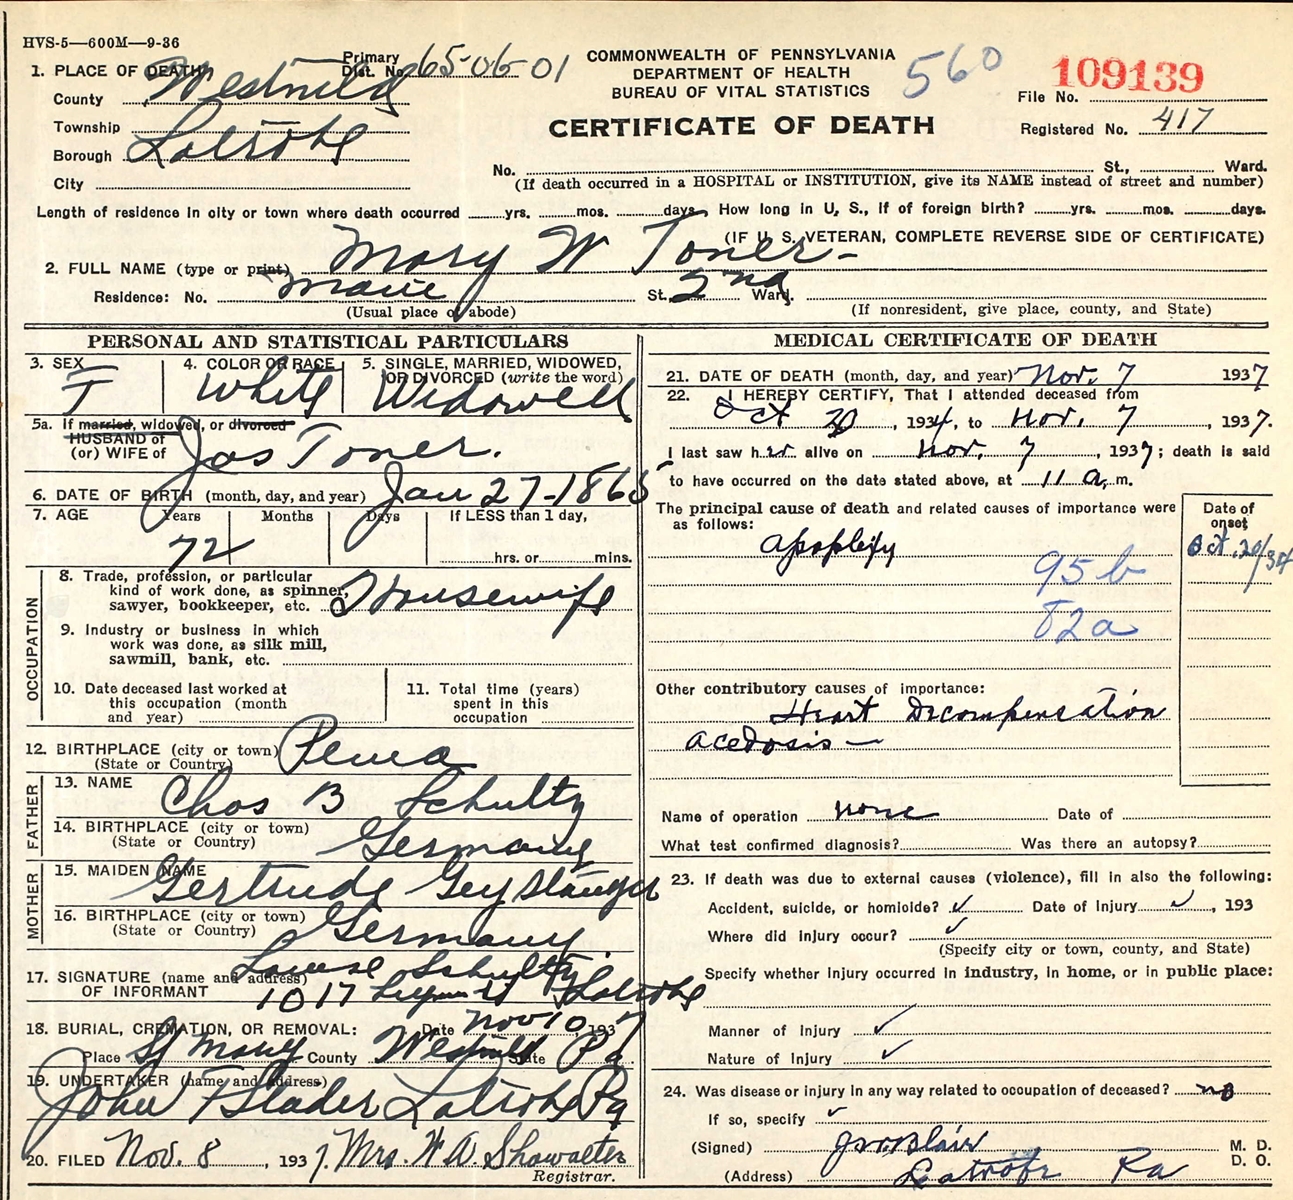 HVS-5—600M—9-36
1. PLACE OF DEATH
Primary Dist. No. 65-06-01
County Westmild
Township
Borough Latrobe
City
COMMONWEALTH OF PENNSYLVANIA
DEPARTMENT OF HEALTH
BUREAU OF VITAL STATISTICS
560
CERTIFICATE OF DEATH
109139
File No.
Registered No. 417
No. St., Ward.
(If death occurred in a HOSPITAL or INSTITUTION, give its NAME instead of street and number)
Length of residence in city or town where death occurred yrs. mos. days. How long in U. S., if of foreign birth? yrs. mos. days.
(IF U. S. VETERAN, COMPLETE REVERSE SIDE OF CERTIFICATE)
2. FULL NAME (type or print) Mary W Toner-
Residence: No. St. 2nd Ward.
(Usual place of abode) (If nonresident, give place, county, and State)
PERSONAL AND STATISTICAL PARTICULARS
3. SEX F
4. COLOR OR RACE White
5. SINGLE, MARRIED, WIDOWED, OR DIVORCED (write the word) Widowed
5a. If married, widowed, or divorced
HUSBAND of
(or) WIFE of Jas Toner.
6. DATE OF BIRTH (month, day, and year) Jan 27-1865
7. AGE Years Months Days If LESS than 1 day,
72 hrs. or mins.
OCCUPATION
8. Trade, profession, or particular kind of work done, as spinner, sawyer, bookkeeper, etc. Housewife
9. Industry or business in which work was done, as silk mill, sawmill, bank, etc.
10. Date deceased last worked at this occupation (month and year)
11. Total time (years) spent in this occupation
12. BIRTHPLACE (city or town) (State or Country) Penna
FATHER
13. NAME Chas B Schultz
14. BIRTHPLACE (city or town) (State or Country) Germany
MOTHER
15. MAIDEN NAME Gertrude
16. BIRTHPLACE (city or town) (State or Country) Germany
17. SIGNATURE (name and address) OF INFORMANT Louise Schultz
1017 Latrobe
18. BURIAL, CREMATION, OR REMOVAL: Date Nov 10, 1937
Place St Marys County Westmild State Pa
19. UNDERTAKER (name and address)
John F Slader Latrobe Pa
20. FILED Nov. 8, 1937. Mrs. W. A. Showalter
Registrar.
MEDICAL CERTIFICATE OF DEATH
21. DATE OF DEATH (month, day, and year) Nov. 7 1937
22. I HEREBY CERTIFY, That I attended deceased from
Oct 20, 1934, to Nov. 7, 1937.
I last saw her alive on Nov. 7, 1937; death is said
to have occurred on the date stated above, at 11 a. m.
The principal cause of death and related causes of importance were as follows:
Date of onset
Apoplexy Oct. 20/34
95b
82a
Other contributory causes of importance:
Heart Decompensation
acedosis—
Name of operation none Date of
What test confirmed diagnosis? Was there an autopsy?
23. If death was due to external causes (violence), fill in also the following:
Accident, suicide, or homicide? ✓ Date of injury ✓, 193
Where did injury occur? ✓
(Specify city or town, county, and State)
Specify whether injury occurred in industry, in home, or in public place:
Manner of injury ✓
Nature of injury ✓
24. Was disease or injury in any way related to occupation of deceased? no
If so, specify ✓
(Signed) J W Blair M. D.
D. O.
(Address) Latrobe Pa